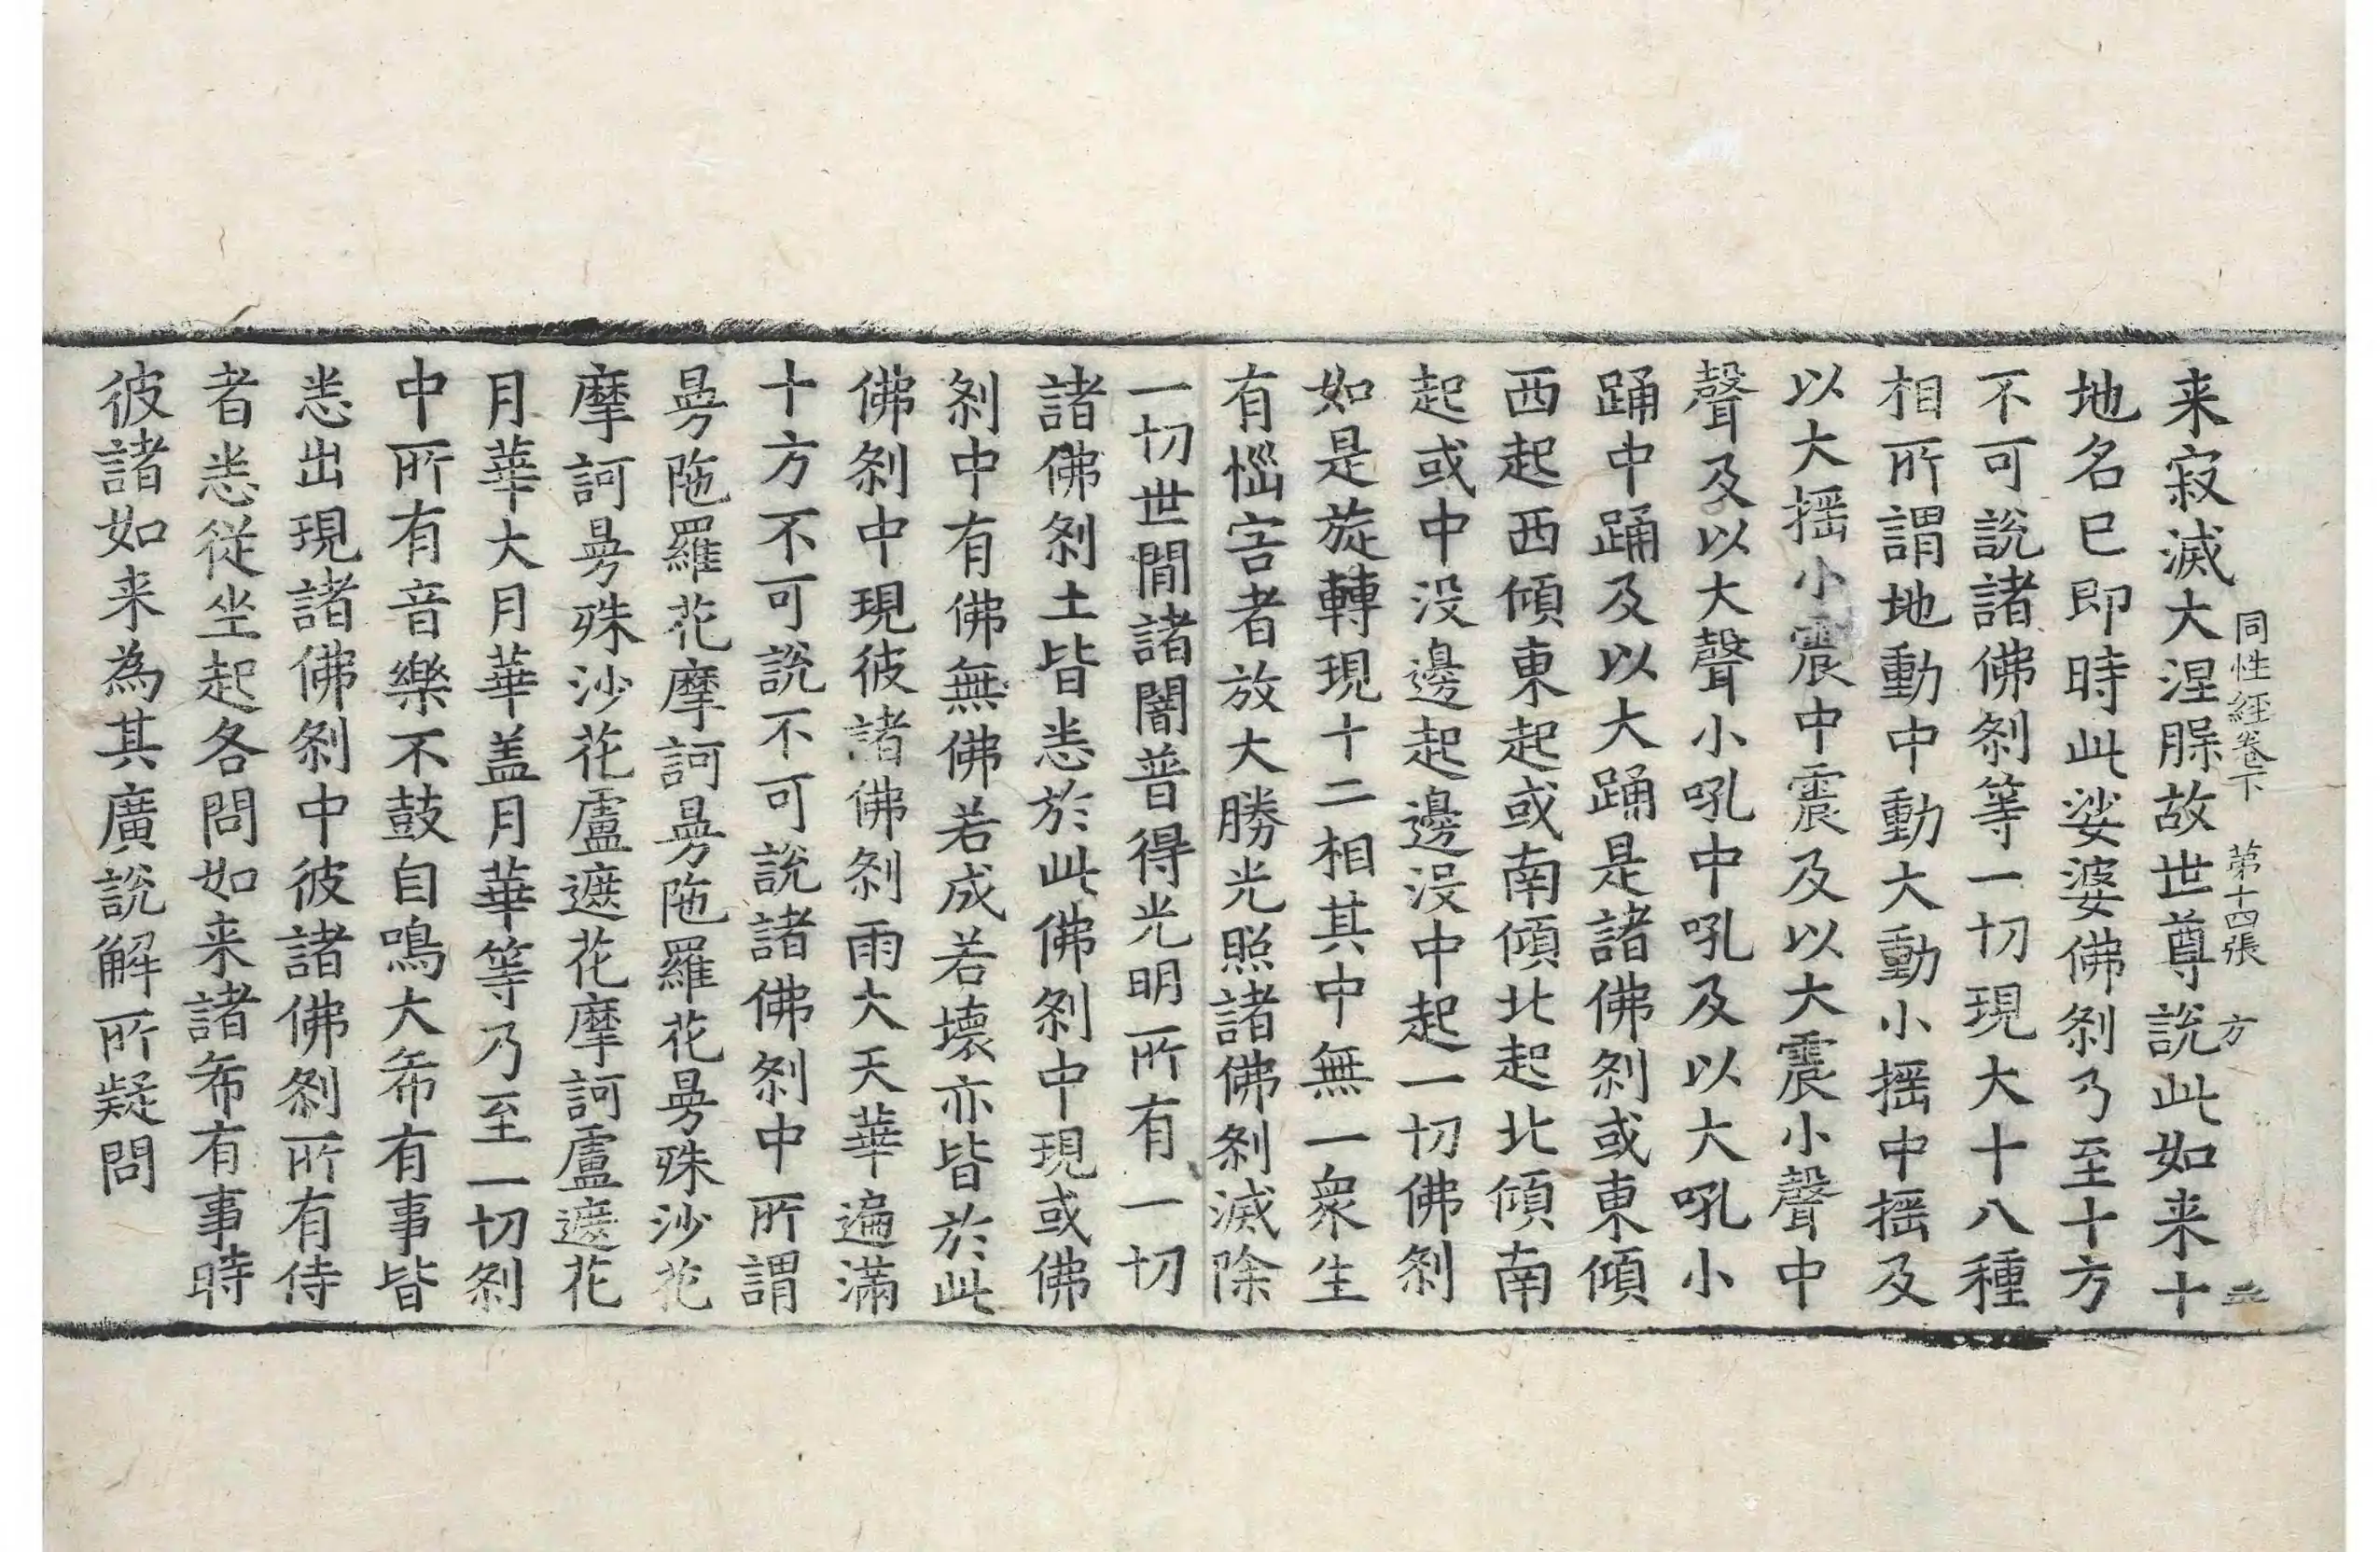 同性経卷下　第十四張　方
来寂滅大涅槃故世尊說此如来十
地名已即時此娑婆佛刹乃至十方
不可說諸佛刹等一切現大十八種
相所謂地動中動大動小揺中揺及
以大揺小震中震及以大震小聲中
聲及以大聲小吼中吼及以大吼小
踊中踊及以大踊是諸佛刹或東傾
西起西傾東起或南傾北起北傾南
起或中没邊起邊没中起一切佛刹
如是旋轉現十二相其中無一衆生
有惱害者放大勝光照諸佛刹滅除
一切世間諸闇普得光明所有一切
諸佛刹土皆悉於此佛刹中現或佛
刹中有佛無佛若成若壞亦皆於此
佛刹中現彼諸佛刹雨大天華遍滿
十方不可說不可說諸佛刹中所謂
曼陁羅花摩訶曼陁羅花曼殊沙花
摩訶曼殊沙花盧遮花摩訶盧遮花
月華大月華盖月華等乃至一切刹
中所有音樂不鼓自鳴大希有事皆
悉出現諸佛刹中彼諸佛刹所有侍
者悉從坐起各問如来諸希有事時
彼諸如来為其廣說解所疑問